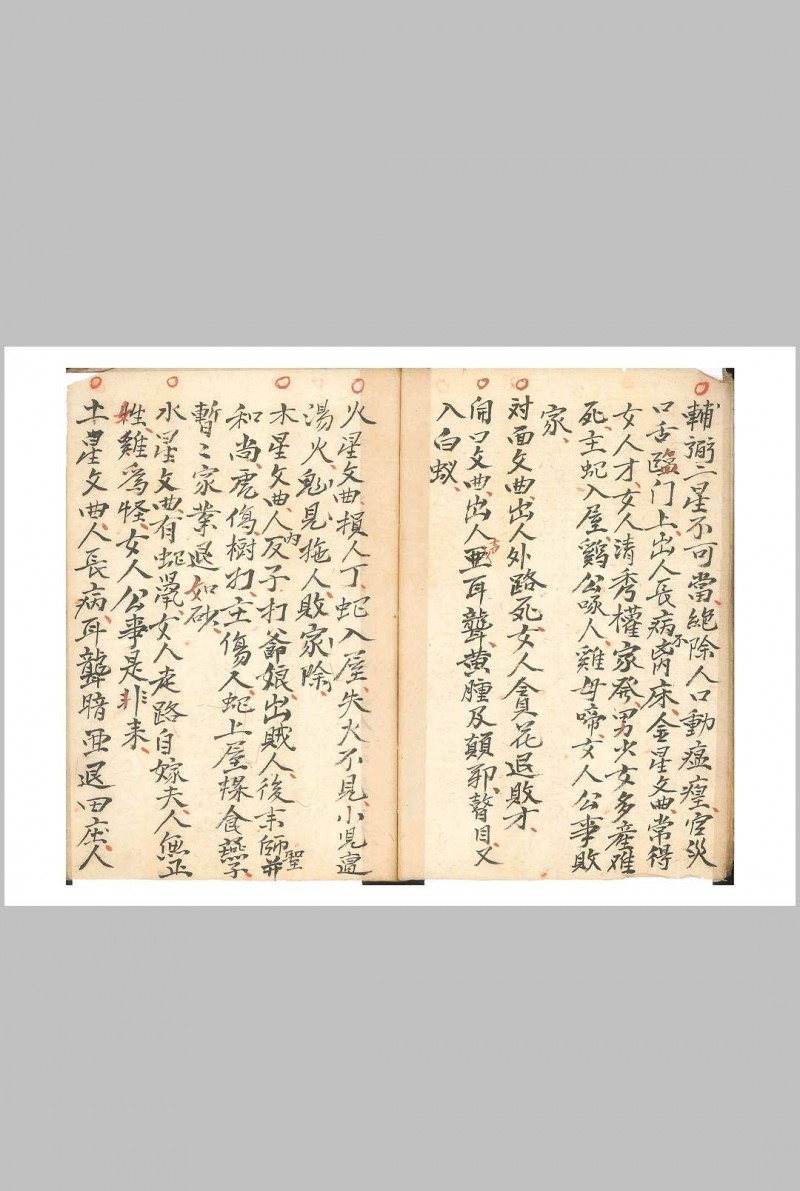 輔弼二星不可當絕除人口動瘟瘟官災
口舌臨门上出人長病不离床金星文曲常得
女人才女人清秀權家發男少女多產难
死主蛇入屋鷄公啄人雞母啼女人公事敗
家
対面文曲出人外路死女人貪花退敗才
開口文曲出人声亜耳聾黄腫及顛邪瞽目又
入白蚁
火星文曲損人丁蛇入屋失火不見小児逼
湯火鬼見拖人敗家除
木星文曲人反内子打爺娘出賊人後末師聖并
和尚虎傷樹打主傷人蛇上屋樑食燕子
暫〻家業退如砂
水星文曲有蛇鼡女人走路自嫁夫人無正
姓雞為怪女人公事是非来
土星文曲人長病耳聾暗亜退田庄人